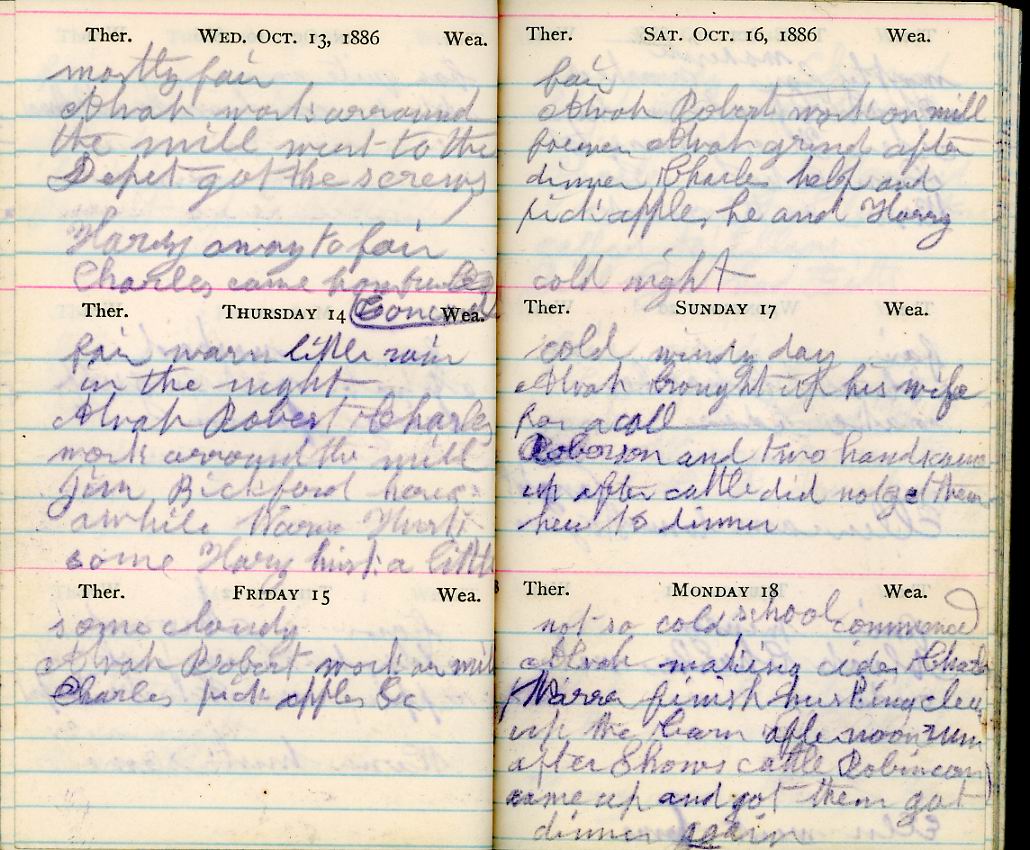 Ther. WED. OCT. 13, 1886 Wea.
mostly fair
Alvah work arround
the mill went to the
Depet got the screws
Harry away to fair
Charles came from
Ther. THURSDAY 14 Wea.
fair warm little rain
in the night
Alvah Robert Charles
work arround the mill
Jim Bickford here
awhile
some Harry husk a little
Ther. FRIDAY 15 Wea.
some cloudy
Alvah Robert work on mill
Charles pick apples &c
Ther. SAT. OCT. 16, 1886 Wea.
fair
Alvah Robert work on mill
forenon Alvah grind after
dinner Charles help and
pick apples he and Harry
cold night
Ther. SUNDAY 17 Wea.
cold windy day
Alvah brought up his wife
for a call
and two hands came
up after cattle did not get them
here to dinner
Ther. MONDAY 18 Wea.
not so cold school commenced
Alvah making cider Charles
finish husking clean
up the barn afte noon run
after Shows cattle Robinson
came up and got them got
dinner again